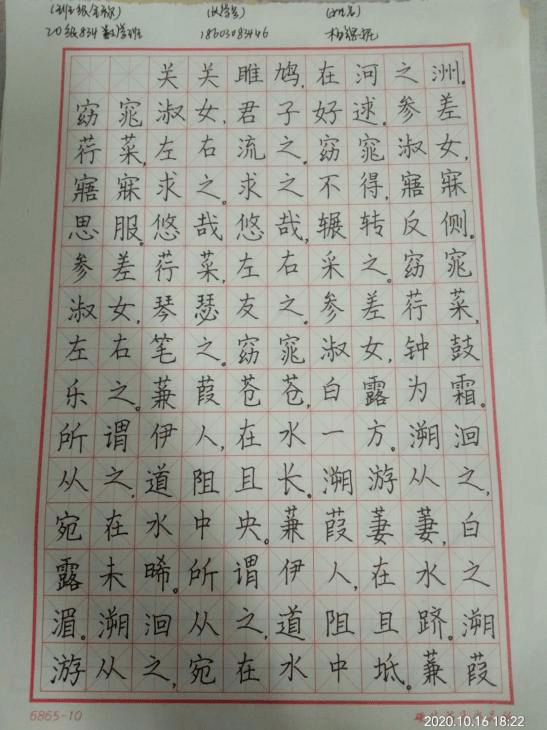 (班级全称) (大学号) (姓名)
20级834 18603083446 杨
关关雎鸠,在河之洲。
窈窕淑女,君子好逑。参差
荇菜,左右流之。窈窕淑女,
寤寐求之。求之不得,寤寐
思服。悠哉悠哉,辗转反侧。
参差荇菜,左右采之。窈窕
淑女,琴瑟友之。参差荇菜,
左右笔之。窈窕淑女,钟鼓
乐之。蒹葭苍苍,白露为霜。
所谓伊人,在水一方。溯洄
从之,道阻且长。溯游从之,
宛在水中央。蒹葭萋萋,白
露未晞。所谓伊人,在水之
湄。溯洄从之,道阻且跻。溯
游从之,宛在水中坻。蒹葭
6865-10
2020.10.16 18:22